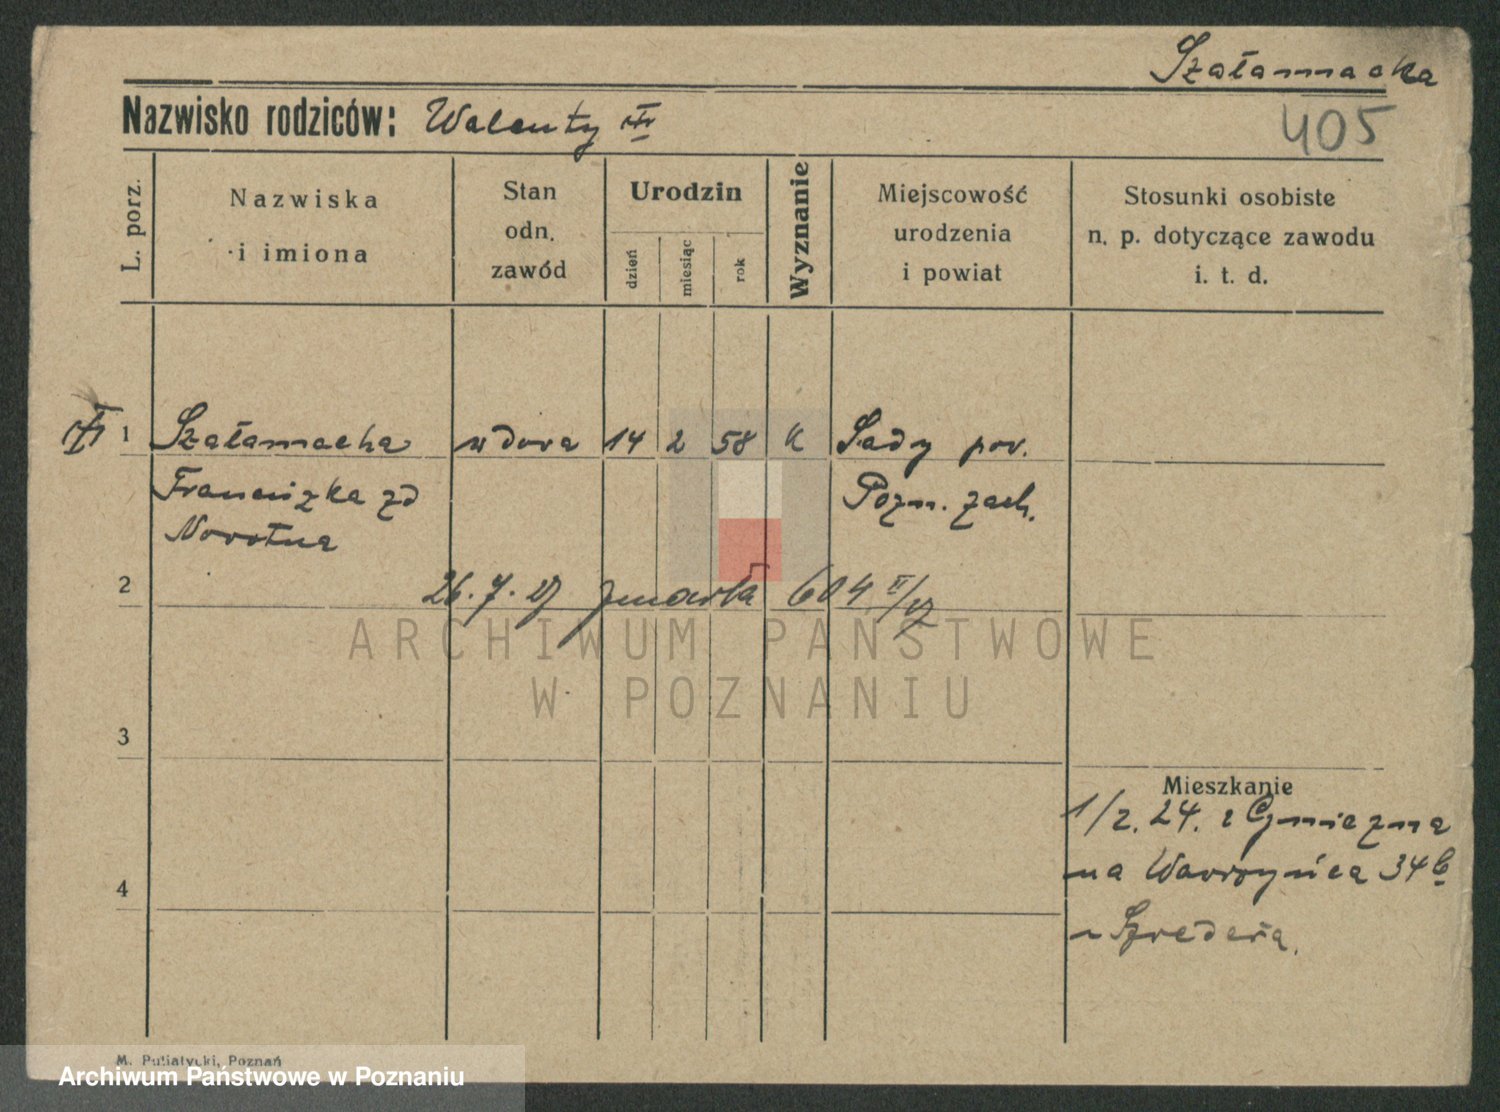 Szałamacha
405
Nazwisko rodziców: Walenty
L. porz.
Nazwiska i imiona
Stan odn. zawód
Urodzin
dzień
miesiąc
rok
Wyznanie
Miejscowość urodzenia i powiat
Stosunki osobiste n. p. dotyczące zawodu i. t. d.
1 Szałamacha wdowa 14 2 58 K Sady pow.
Franciszka zd Pozn. zach.
Nowotna
2
26. 7. 27 zmarła 604 II/27
ARCHIWUM PAŃSTWOWE
W POZNANIU
3
Mieszkanie
1/2. 24. z Gnieźna
na Wawrzyńca 34b
4
u Szredera.
M. Putiatycki, Poznań
Archiwum Państwowe w Poznaniu